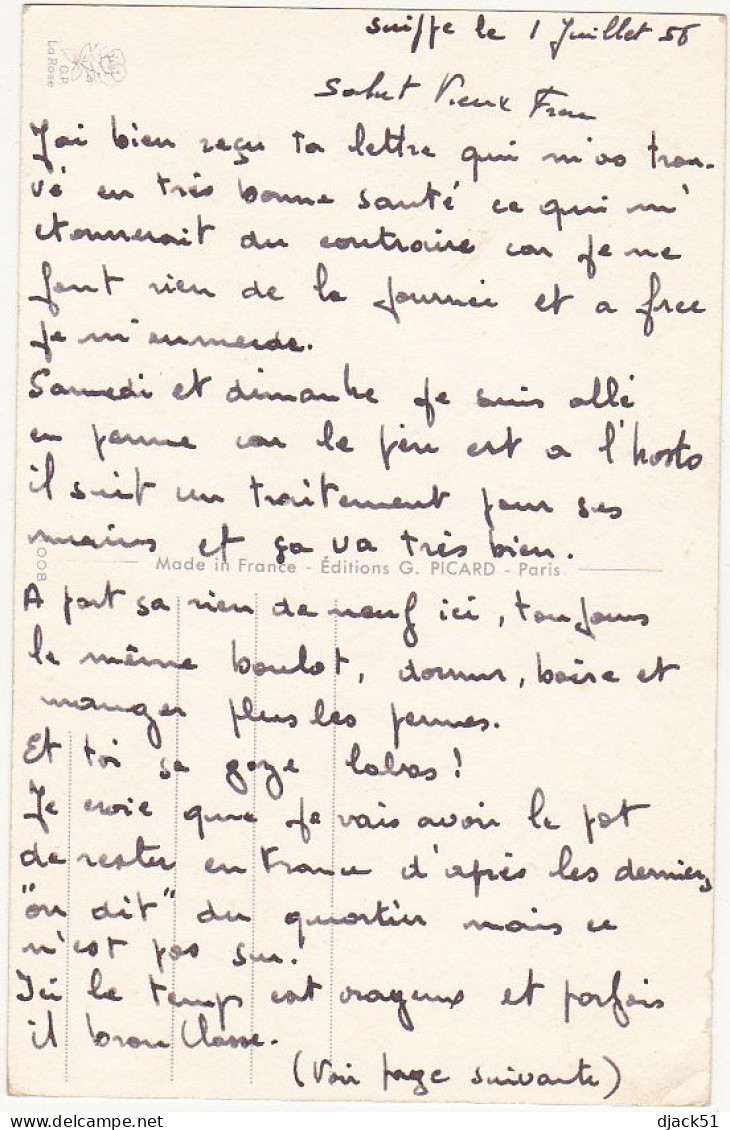 Suippe le 1 Juillet 56
G.P.
La Rose
Salut Vieux Frau
J'ai bien reçu ta lettre qui m'as trou-
vé en très bonne santé ce qui m'
etonnerait du contraire car je ne
fout rien de la journée et a free
je m'enmerde.
Samedi et dimanhe je suis allé
en perme car le père est a l'hosto
il suit un traitement pour ses
mains et ça va très bien.
008
Made in France - Éditions G. PICARD - Paris
A part sa rien de neuf ici, toujours
le même boulot, dormir, boire et
manger plus les permes.
Et toi sa gaze labas!
Je croie que je vais avoir le pot
de rester en France d'après les derniers
"on dit" du quartier mais ce
n'est pas sur.
Ici le temps est orageux et parfois
il brouillasse.
(Voir page suivante)
djack51